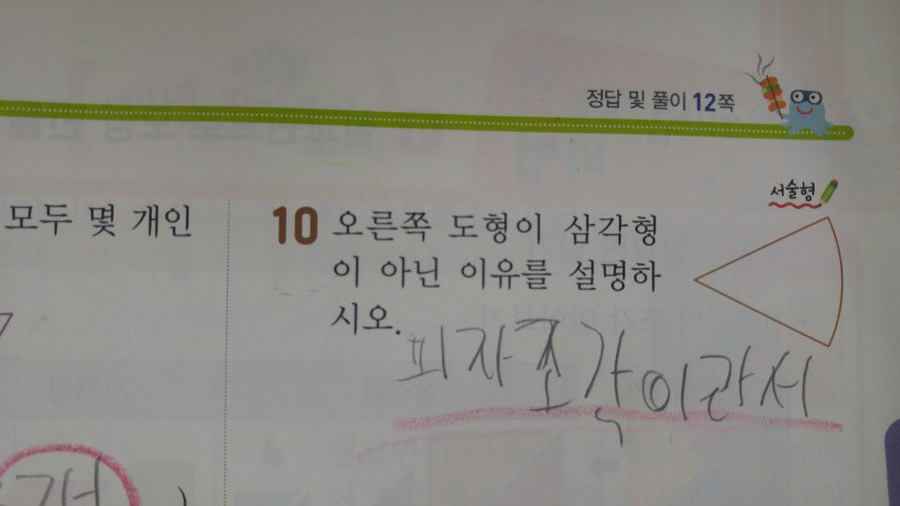 정답 및 풀이 12쪽
서술형
모두 몇 개인
10 오른쪽 도형이 삼각형
이 아닌 이유를 설명하
시오.
피자조각이라서